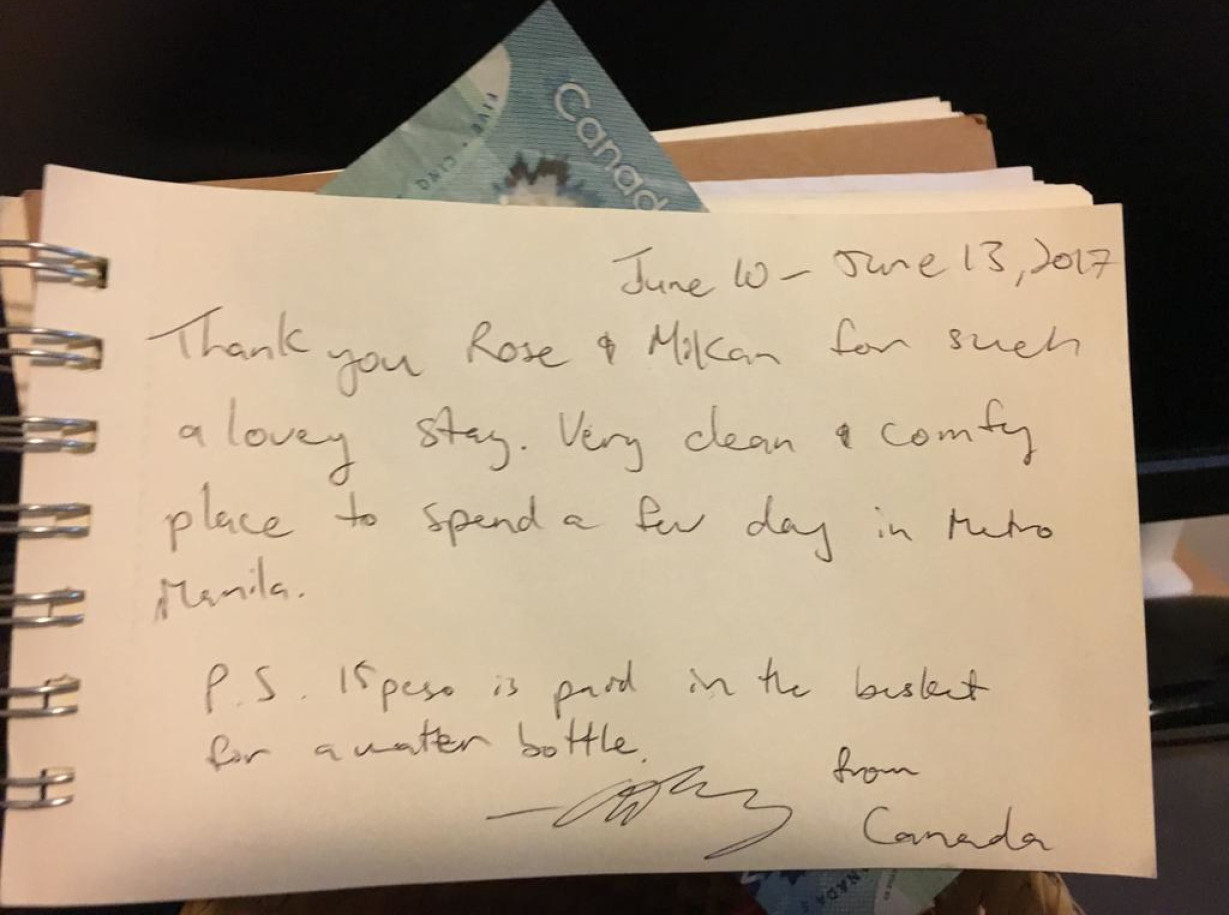 FIVE • CINQ
Canad
June 10 - June 13, 2017
Thank you Rose & Milkan for such
a lovey stay. Very clean & comfy
place to spend a few day in Metro
Manila.
P.S. 15 peso is paid in the basket
for a water bottle.
from
Canada
ANADA